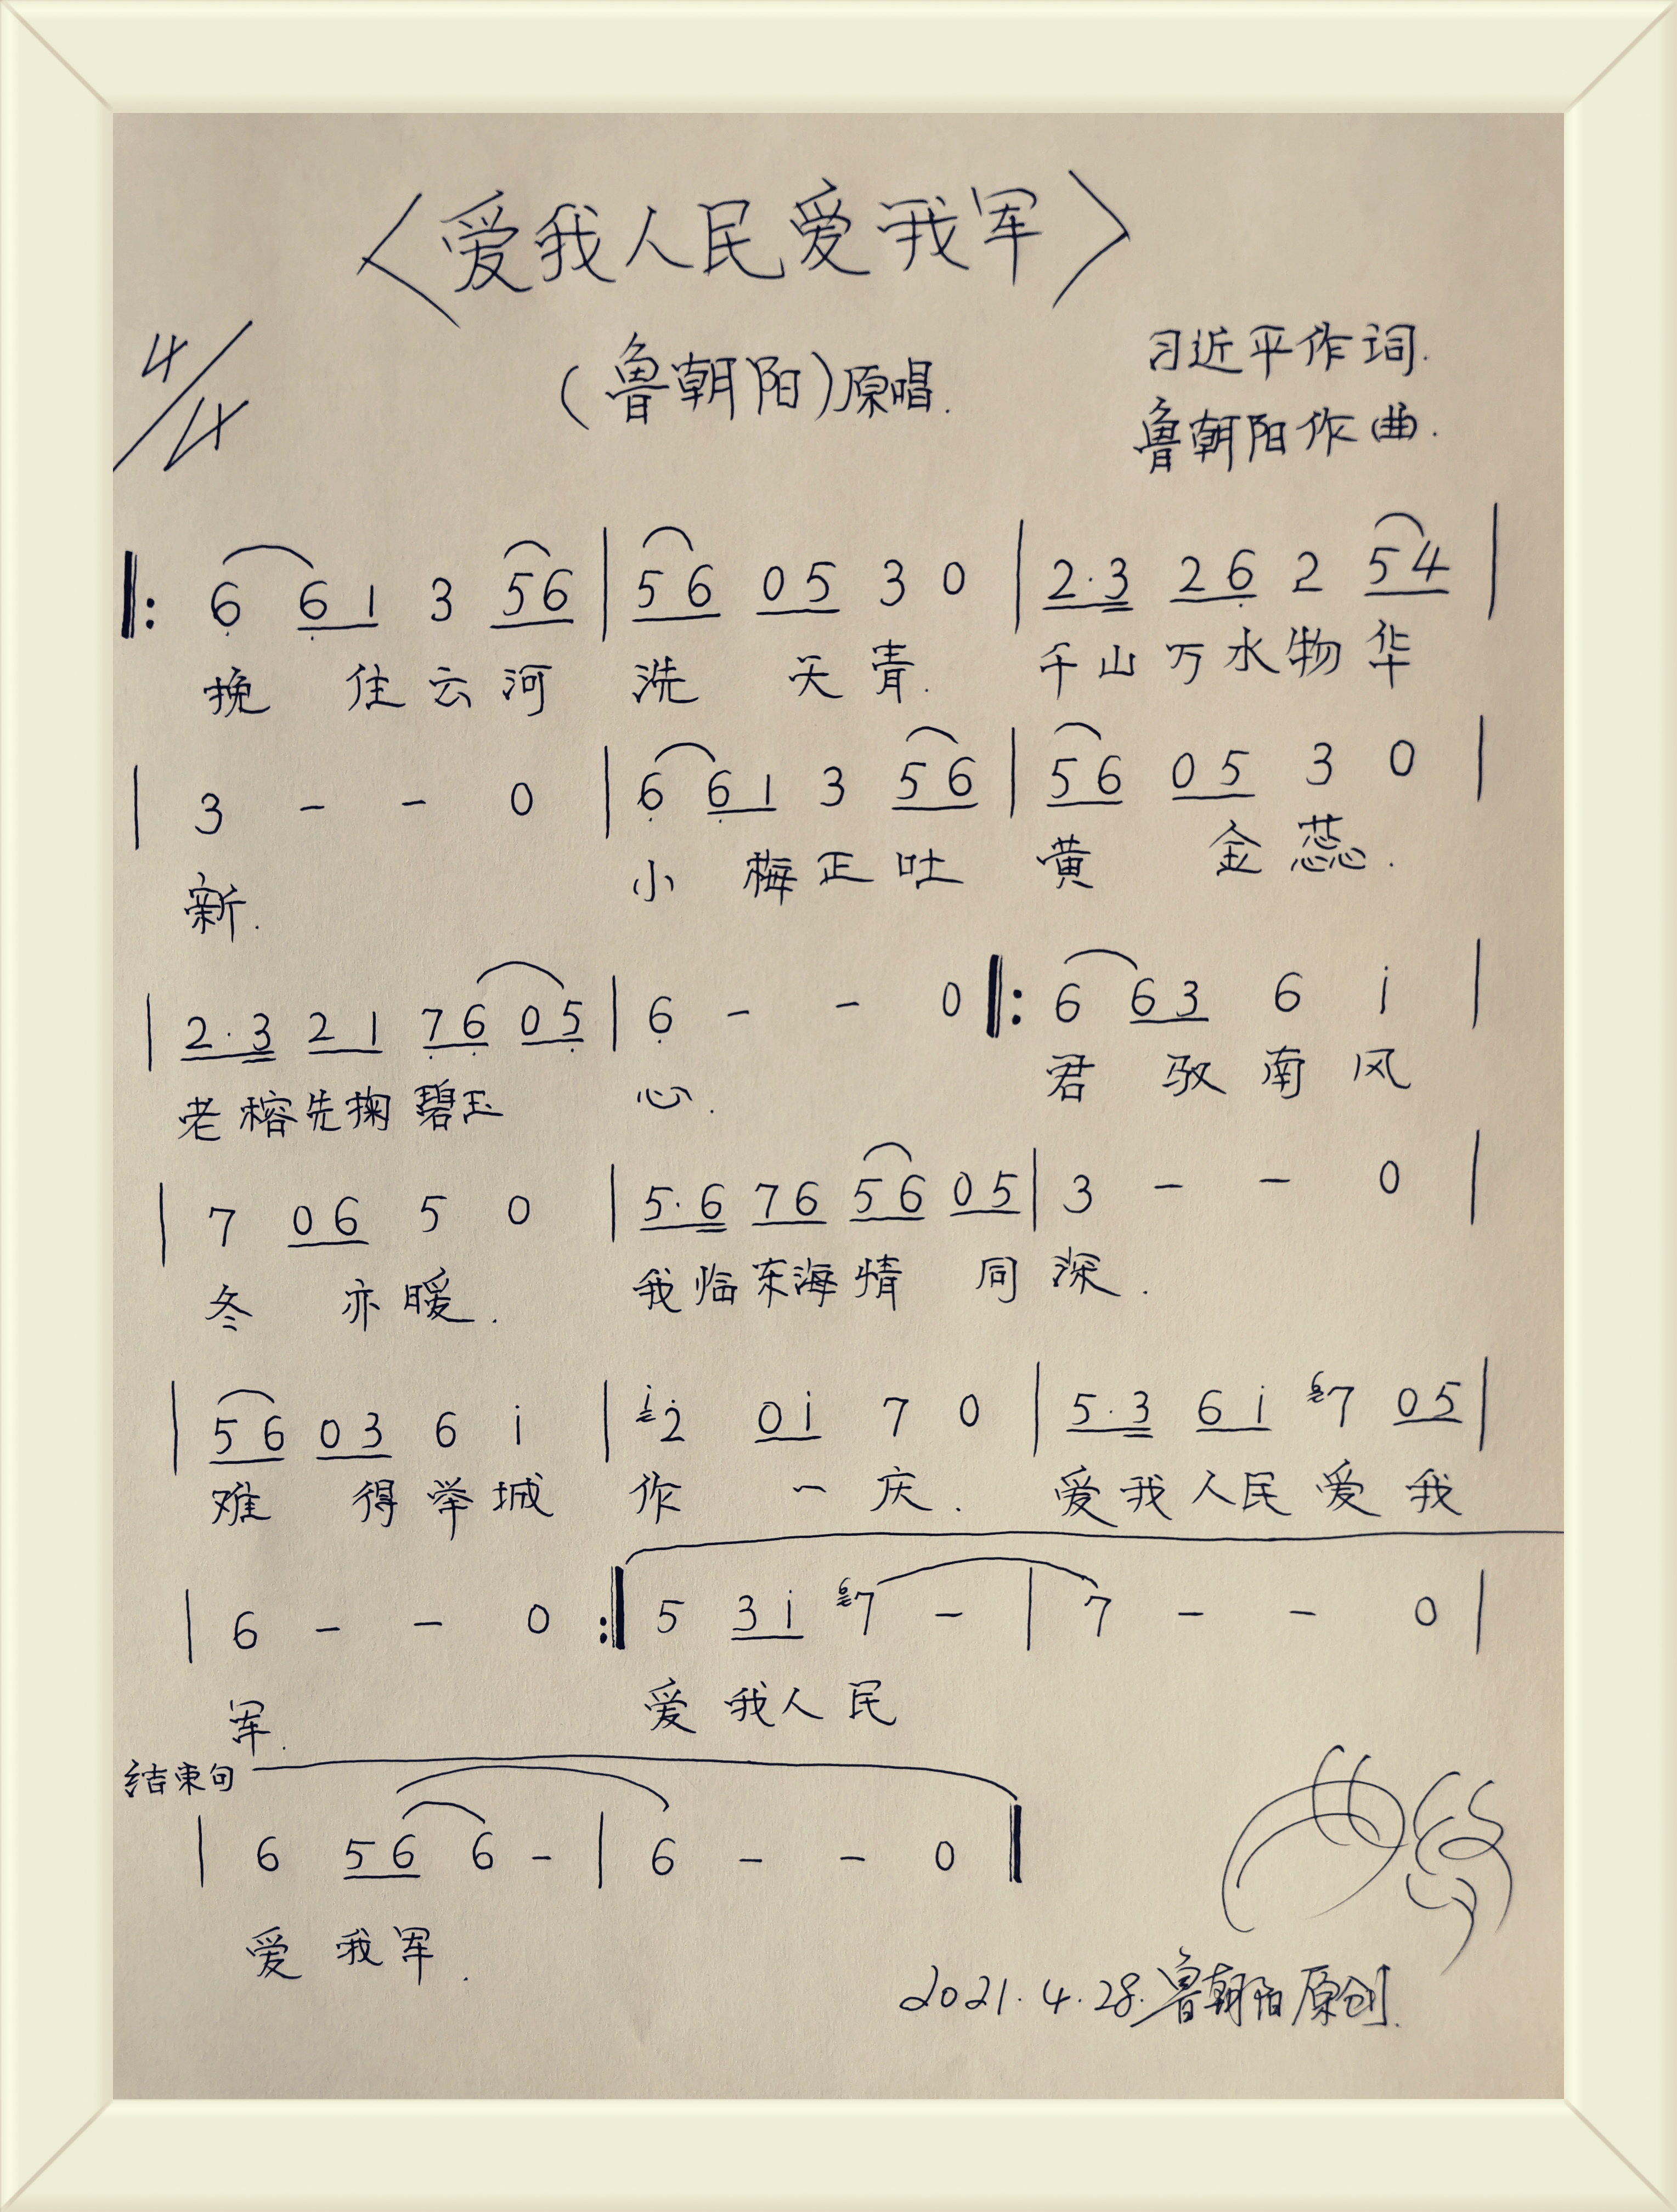 〈爱我人民爱我军〉
4/4
(鲁朝阳)原唱.
习近平作词.
鲁朝阳作曲.
‖: 6̣ 6̣ 1 3 5 6 | 5 6 0 5 3 0 | 2·3 2 6̣ 2 5 4 |
挽 住 云 河 洗 天 青. 千 山 万 水 物 华
| 3 - - 0 | 6̣ 6̣ 1 3 5 6 | 5 6 0 5 3 0 |
新. 小 梅 正 吐 黄 金 蕊.
| 2·3 2 1 7̣ 6̣ 0 5̣ | 6̣ - - 0 ‖: 6 6 3 6 i |
老 榕 先 掬 碧 玉 心. 君 驭 南 风
| 7 0 6 5 0 | 5·6 7 6 5 6 0 5 | 3 - - 0 |
冬 亦 暖. 我 临 东 海 情 同 深.
| 5 6 0 3 6 i | i 2̇ 0 i 7 0 | 5·3 6 i 6 7 0 5 |
难 得 举 城 作 一 庆. 爱 我 人 民 爱 我
| 6 - - 0 :‖ 5 3 i 6 7 - | 7 - - 0 |
军. 爱 我 人 民
结束句
| 6 5 6 6 - | 6 - - 0 ‖
爱 我 军.
2021.4.28.鲁朝阳原创.